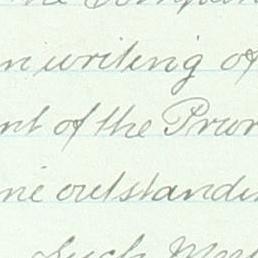 the Compan
n writing of
nt of the Prior
ne outstandin
Such Mort